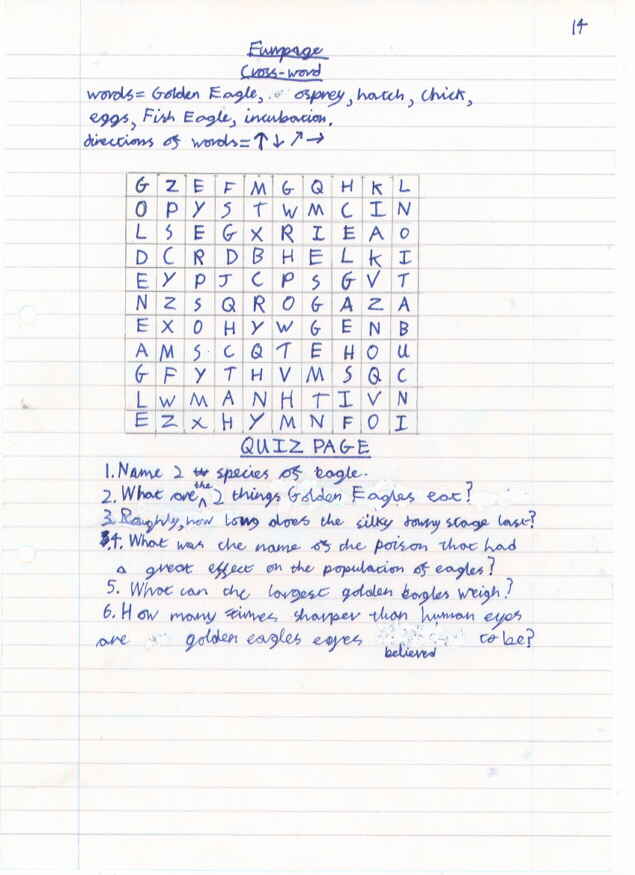 14
Funpage
Cross-word
words= Golden Eagle, osprey, hatch, chick,
eggs, Fish Eagle, incubation.
directions of words=↑↓↗→
G Z E F M G Q H K L
O P Y S T W M C I N
L S E G X R I E A O
D C R D B H E L K I
E Y P J C P S G V T
N Z S Q R O G A Z A
E X O H Y W G E N B
A M S C Q T E H O U
G F Y T H V M S Q C
L W M A N H T I V N
E Z X H Y M N F O I
QUIZ PAGE
1. Name 2 species of Eagle.
2. What are the 2 things Golden Eagles eat?
3. Roughly, how long does the silky downy stage last?
4. What was the name of the poison that had
a great effect on the population of eagles?
5. What can the largest golden Eagles weigh?
6. How many times sharper than human eyes
are golden eagles eyes believed to be?